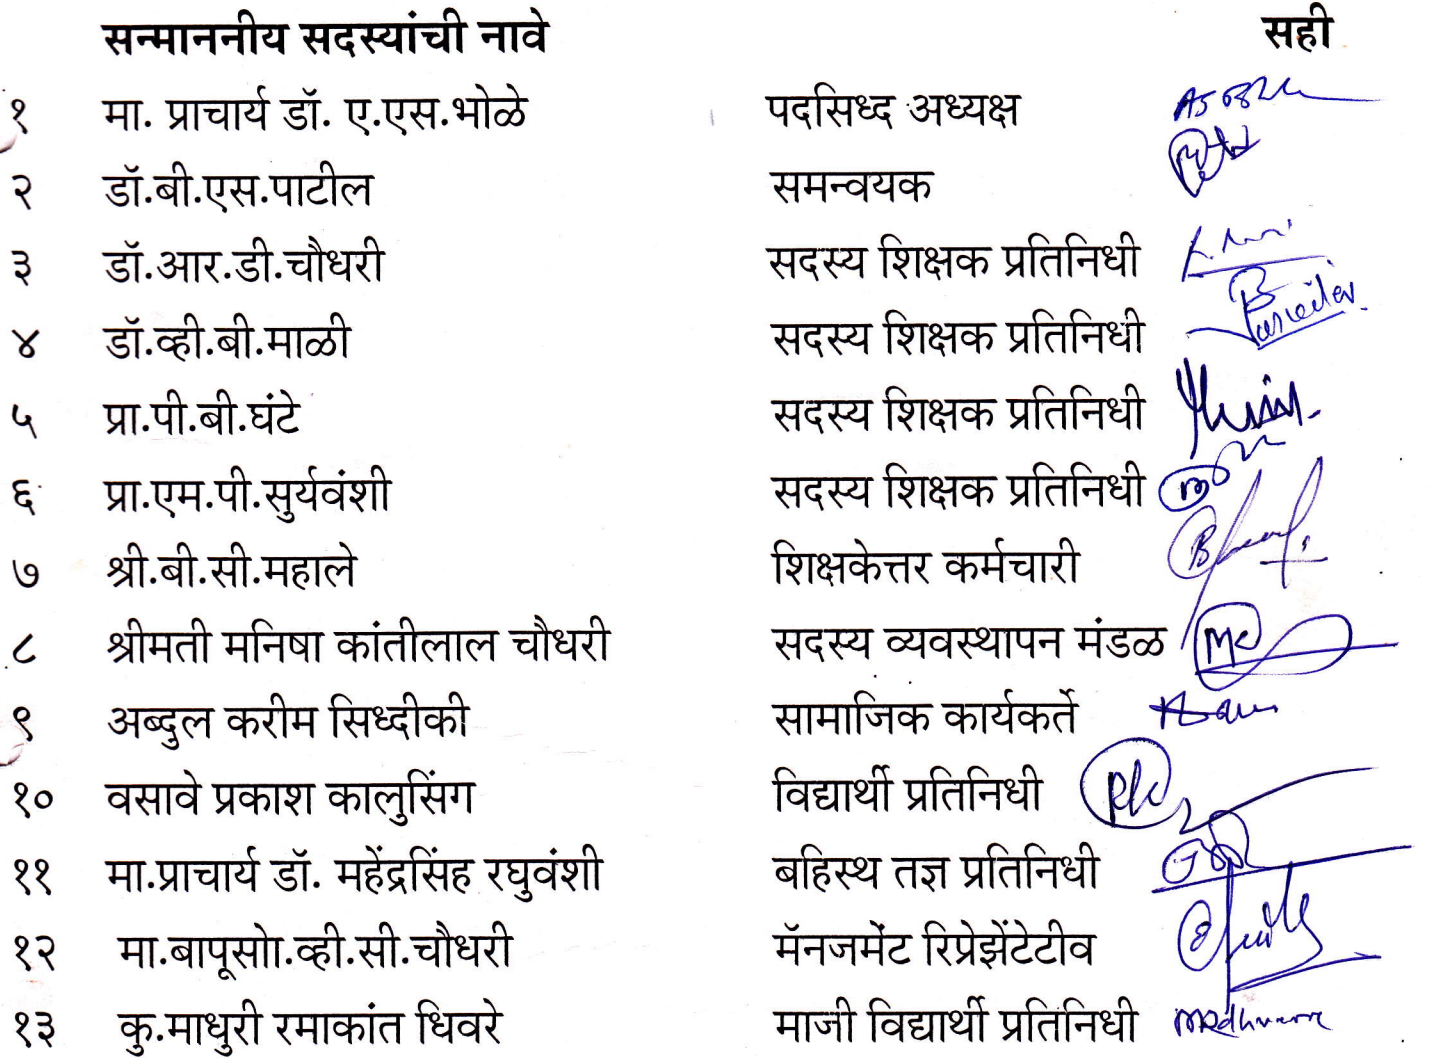 सन्माननीय सदस्यांची नावे सही
१ मा. प्राचार्य डॉ. ए.एस.भोळे पदसिध्द अध्यक्ष
२ डॉ.बी.एस.पाटील समन्वयक
३ डॉ.आर.डी.चौधरी सदस्य शिक्षक प्रतिनिधी
४ डॉ.व्ही.बी.माळी सदस्य शिक्षक प्रतिनिधी
५ प्रा.पी.बी.घंटे सदस्य शिक्षक प्रतिनिधी
६ प्रा.एम.पी.सुर्यवंशी सदस्य शिक्षक प्रतिनिधी
७ श्री.बी.सी.महाले शिक्षकेत्तर कर्मचारी
८ श्रीमती मनिषा कांतीलाल चौधरी सदस्य व्यवस्थापन मंडळ
९ अब्दुल करीम सिध्दीकी सामाजिक कार्यकर्ते
१० वसावे प्रकाश कालुसिंग विद्यार्थी प्रतिनिधी
११ मा.प्राचार्य डॉ. महेंद्रसिंह रघुवंशी बहिस्थ तज्ञ प्रतिनिधी
१२ मा.बापूसाो.व्ही.सी.चौधरी मॅनजमेंट रिप्रेझेंटेटीव
१३ कु.माधुरी रमाकांत धिवरे माजी विद्यार्थी प्रतिनिधी